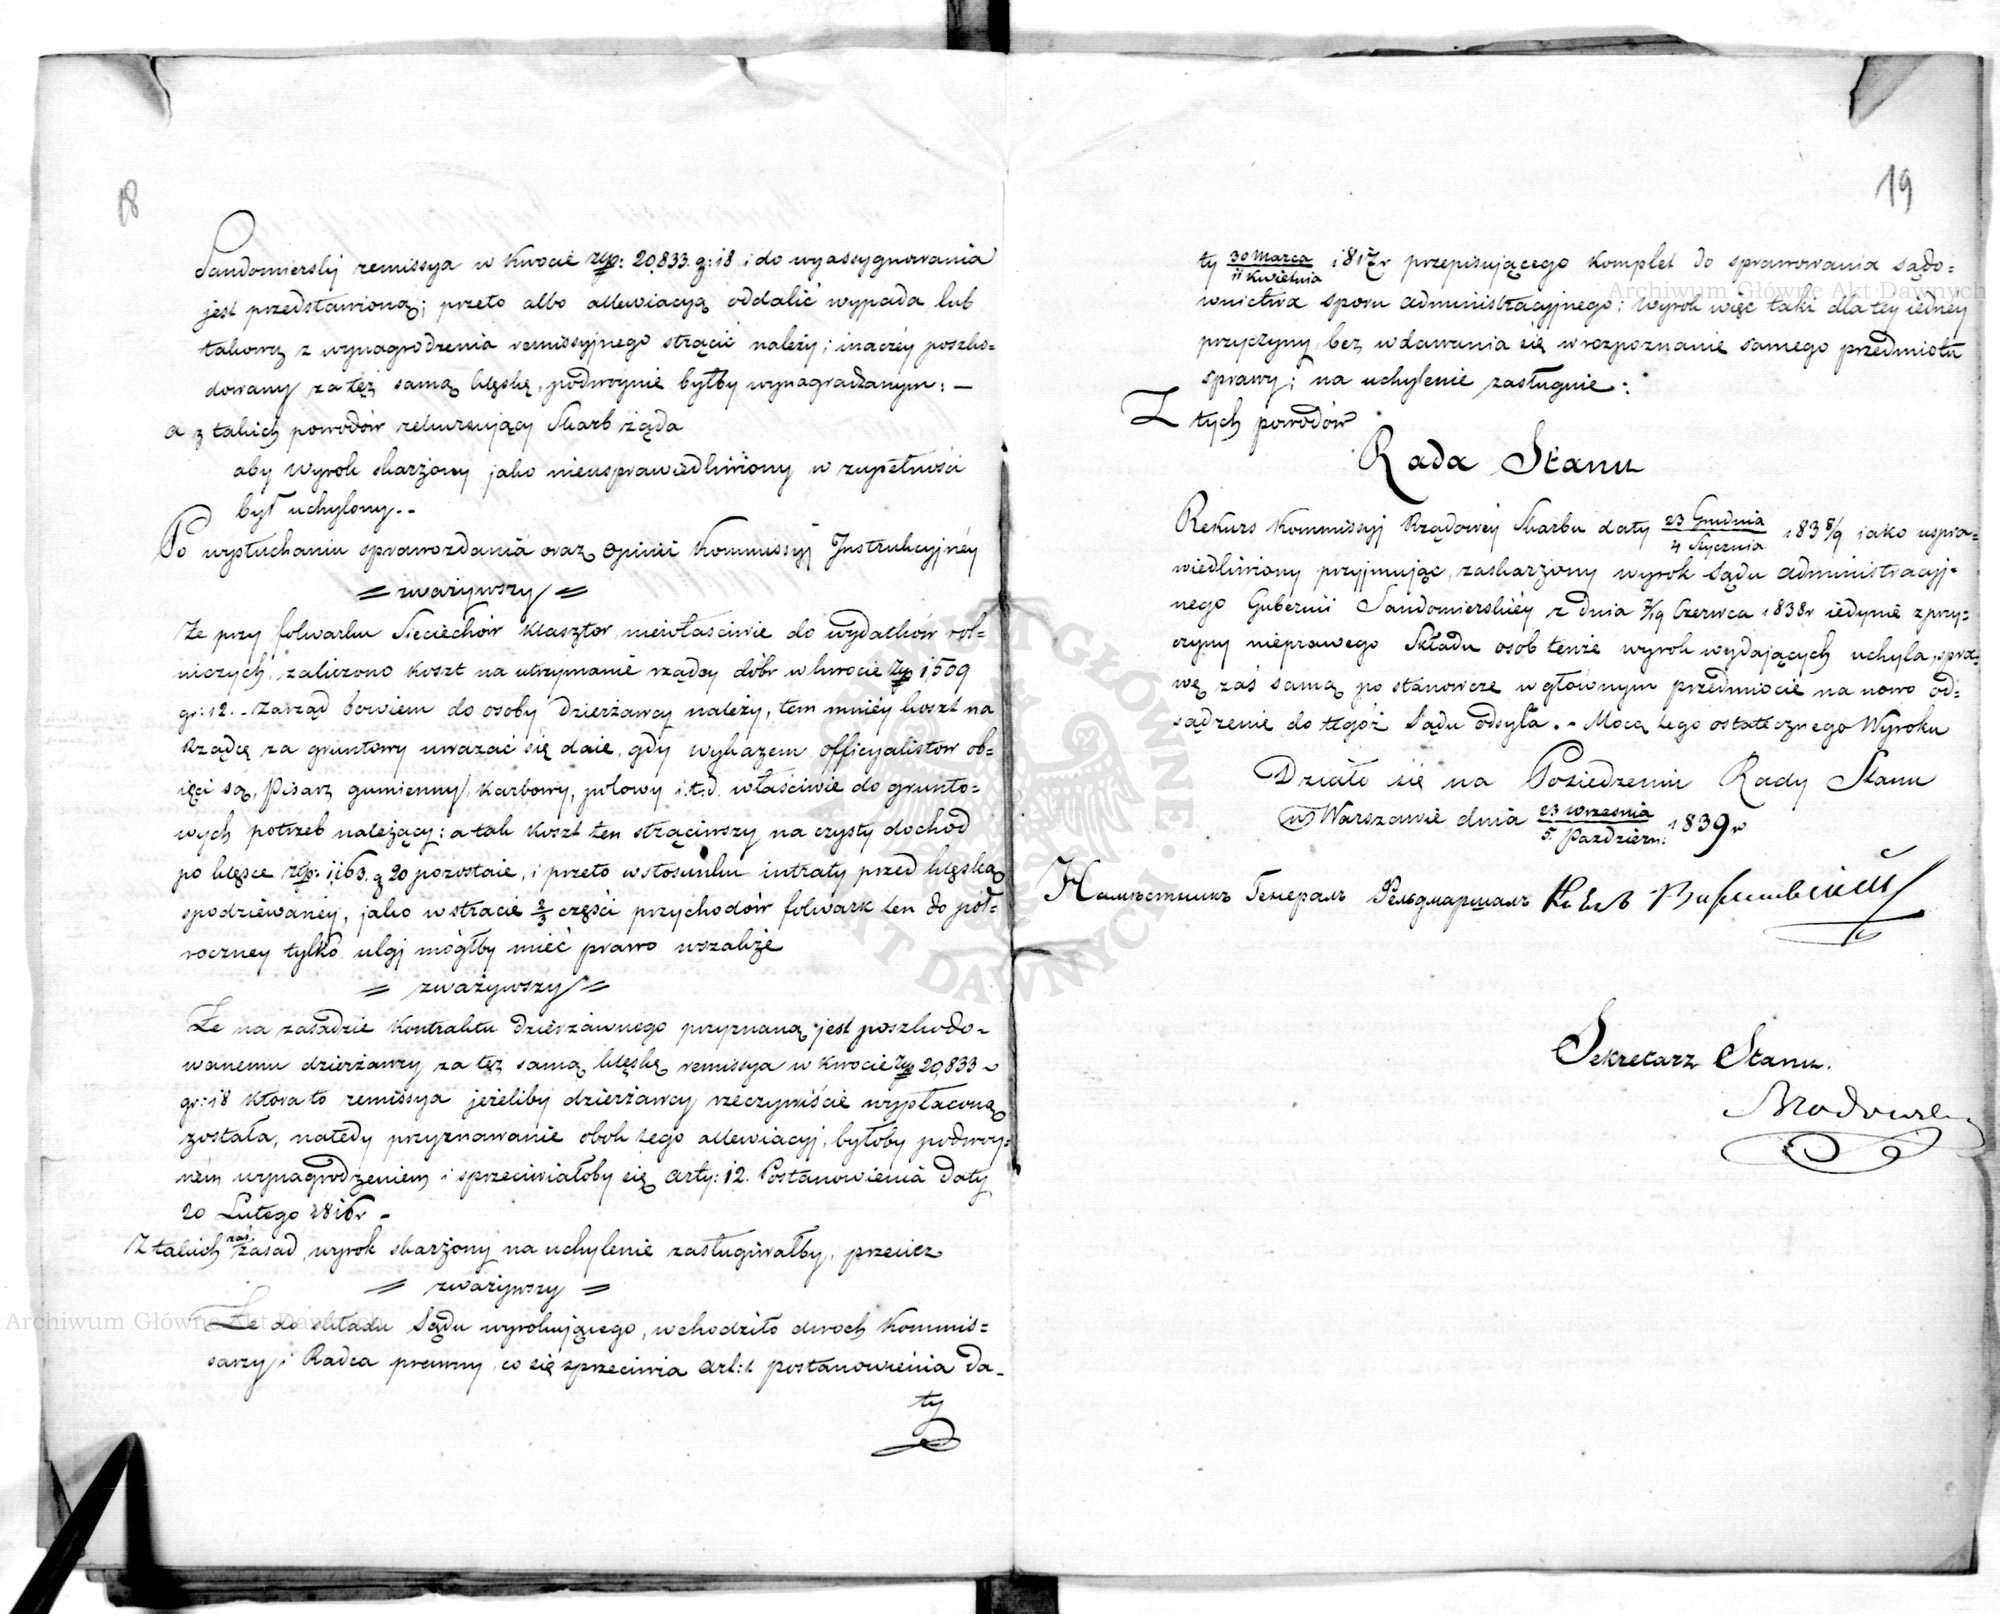 18
Sandomierskij remissya w kwocie złp: 20,833. g: 18 i do wyassygnowania
jest przedstawioną; przeto albo allewiacyą oddalić wypada, lub
takowę z wynagrodzenia remissyjnego strącić należy; inaczéy poszko=
dowany za tęż samą klęskę, podwoynie byłby wynagradzanym: —
a z takich powodów rekursujący Skarb żąda
aby wyrok skarżony jako nieusprawiedliwiony w zupełności
był uchylony. -
Po wysłuchaniu sprawozdania oraz opinii Kommissyj Instrukcyjnéy
= zważywszy =
Że przy folwarku Sieciechów Klasztor, niewłaściwie do wydatków rol=
niczych zaliczono koszt na utrzymanie rządcy dóbr w kwocie złp 1,509
gr: 12. - Zarząd bowiem do osoby Dzierżawcy należy, tem mniéy koszt na
Rządcę za gruntowy uważać się daie, gdy wykazem officyalistów ob=
ięci są, Pisarz gumienny, Karbowy, polowy i.t.d. właściwie do grunto=
wych potrzeb należący: a tak koszt ten strąciwszy na czysty dochod
po klęsce złp: 1,163. g 20 pozostaie, i przeto w stosunku intraty przed klęską
spodziewanéy, jako w stracie 2/3 części przychodów folwark ten do pół=
roczney tylko ulgi mógłby mieć prawo wszakże
= zważywszy =
Że na zasadzie Kontraktu Dzierżawnego przyznaną jest poszkodo=
wanemu dzierżawcy za tęż samą klęskę remissya w kwocie złp 20,833
gr: 18 która to remissya jeżeliby dzierżawcy rzeczywiście wypłaconą
została, natedy przyznawanie obok tego allewiacyj, byłoby podwoy=
nem wynagrodzeniem i sprzeciwiałoby się arty: 12. Postanowienia daty
20 Lutego 1816r -
Z takich zaś zasad, wyrok skarżony na uchylenie zasługiwałby, przecież
= zważywszy =
Że do składu Sądu wyrokującego, wchodziło dwoch Kommis=
sarzy i Radca prawny, co się sprzeciwia art: 1 postanowienia da=
ty
19
ty 30 Marca / 11 Kwietnia 1817r przepisującego komplet do sprawowania sądo=
wnictwa sporu administracyjnego; Wyrok więc taki dla tey iedney
przyczyny, bez wdawania się w rozpoznanie samego przedmiotu
sprawy; na uchylenie zasługuie:
Z tych powodów
Rada Stanu
Rekurs Kommissyj Rządowéy Skarbu daty 23 Grudnia / 4 Stycznia 183 8/9 iako uspra=
wiedliwiony przyjmując, zaskarżony wyrok Sądu administracyj=
nego Gubernii Sandomierskiéy z dnia 7/19 Czerwca 1838r iedynie z przy=
czyny nieprawego Składu osob tenże wyrok wydających uchyla, spra=
wę zaś samą po stanowcze w głównym przedmiocie na nowo od=
sądzenie do tegoż Sądu odsyła. - Mocą tego ostatecznego Wyroku
Działo się na Posiedzeniu Rady Stanu
w Warszawie dnia 23 Września / 5. Październ: 1839r
Намѣстникъ Генералъ Фельдмаршалъ
Sekretarz Stanu.
Archiwum Główne Akt Dawnych
Archiwum Główne Akt Dawnych
ARCHIWUM GŁÓWNE AKT DAWNYCH